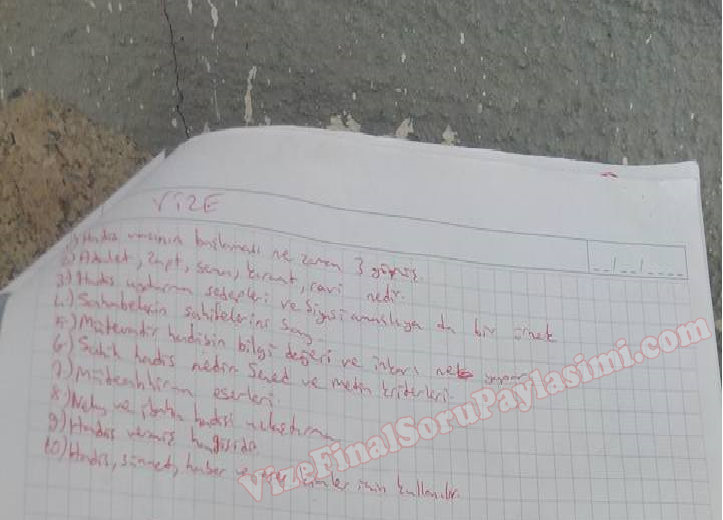 VİZE
1) Hadis başlaması ne zaman 3 görüş.
2) Adalet, Zapt, Sema, kıraat, ravi nedir.
3) Hadis uydurma sebepleri ve Siyasi da bir örnek
4.) Sahabelerin sahifelerini say.
5.) Mütevatir hadisin bilgi değeri ve inkarı ne yapar.
6) Sahih hadis nedir Sened ve metin kriterleri.
7.) eserleri.
8.) ve hadisi
9) Hadis hangisidir.
10) Hadis, sünnet, haber ve eser kimler için kullanılır.
VizeFinalSoruPaylasimi.com